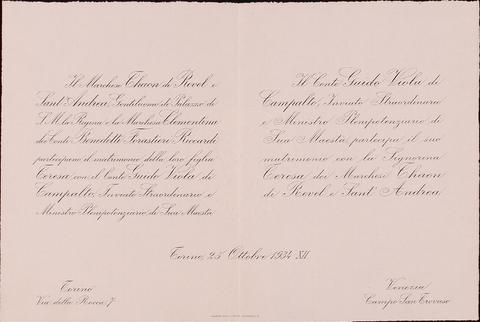 Il Marchese Thaon di Revel e
Sant'Andrea, Gentiluomo di Palazzo di
S. M. la Regina e la Marchesa Clementina
dei Conti Benedetti Forastieri Riccardi
partecipano il matrimonio della loro figlia
Teresa con il Conte Guido Viola di
Campalto, Inviato Straordinario e
Ministro Plenipotenziario di Sua Maestà
Il Conte Guido Viola di
Campalto, Inviato Straordinario
e Ministro Plenipotenziario di
Sua Maestà partecipa il suo
matrimonio con la Signorina
Teresa dei Marchesi Thaon
di Revel e Sant'Andrea
Torino, 25 Ottobre 1934 XII
Torino
Via della Rocca, 7
Venezia
Campo San Trovaso